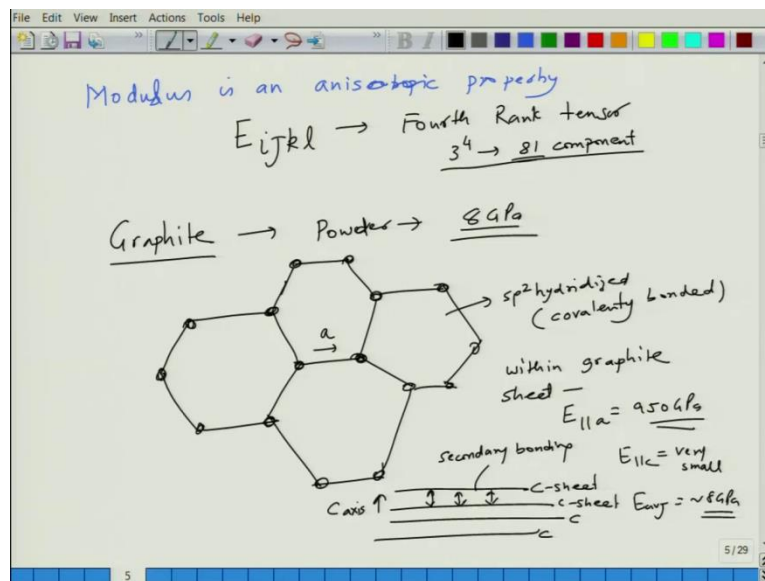 File Edit View Insert Actions Tools Help
B I
Modulus is an anisotropic property
E ijkl → Fourth Rank tensor
3⁴ → 81 component
Graphite → Powder → 8 GPa
a
→ sp² hydridized
(covalenty bonded)
within graphite
sheet —
E||a = 950 GPa
secondary bonding
E||c = very
small
C-sheet
C axis ↑
c-sheet
Eavg = ~8GPa
c
c
5/29
5